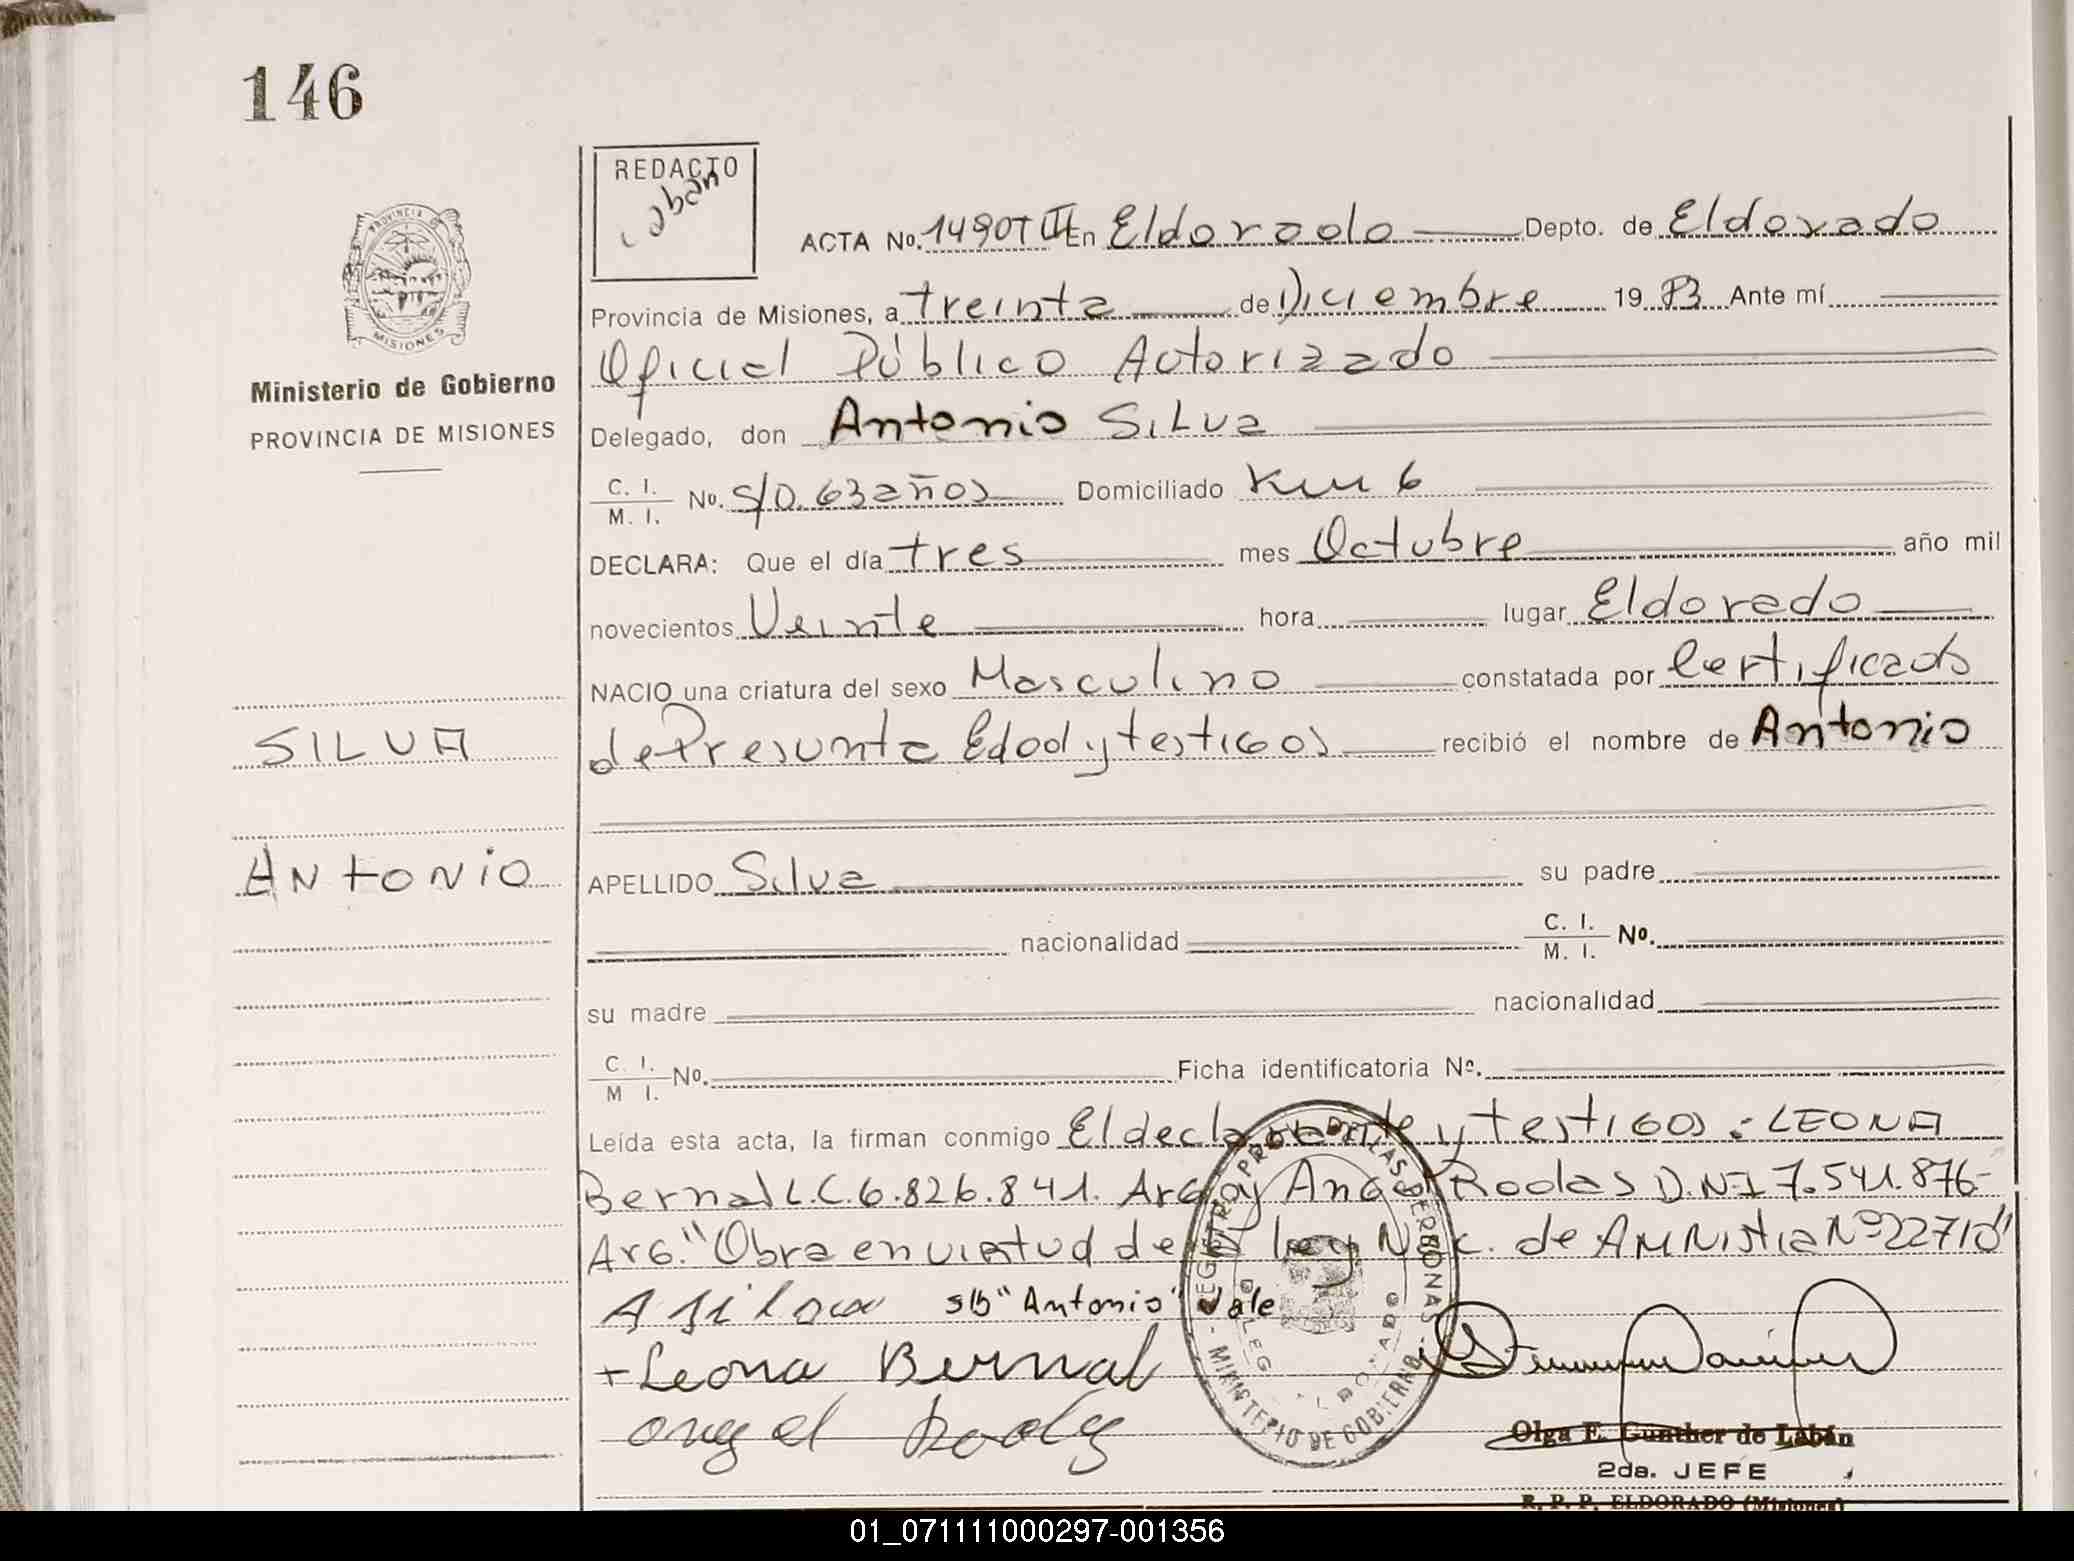 146
REDACTO
Laban
ACTA No. 1490T III En Eldorado Depto. de Eldorado
Provincia de Misiones, a treinta de Diciembre 19 83 Ante mí
Oficial Público Actorizado
Delegado, don Antonio Silva
C. I. M. I. No. S/D. 63 años Domiciliado Km 6
DECLARA: Que el día tres mes Octubre año mil
novecientos Veinte hora lugar Eldorado
NACIO una criatura del sexo Masculino constatada por Certificado
de Presunta Edad y testigos recibió el nombre de Antonio
APELLIDO Silva su padre
nacionalidad C. I. M. I. No.
su madre nacionalidad
C. I. M I. No. Ficha identificatoria Nº.
Leída esta acta, la firman conmigo El declarante y testigos: LEONA
Bernal L.C. 6.826.841. Arg. y Angel Rodas D.N.I 7.541.876-
Arg. "Obra en virtud de la ley Nac. de Amnistia Nº 22710"
A Silva S/b "Antonio" Vale
+ Leona Bernal
angel Rodas
Olga E. Gunther de Labán
2da. JEFE
R. P. P. ELDORADO (Misiones)
PROVINCIA DE
MISIONES
Ministerio de Gobierno
PROVINCIA DE MISIONES
SILVA
ANTONIO
MINISTERIO DE GOBIERNO
01_071111000297-001356